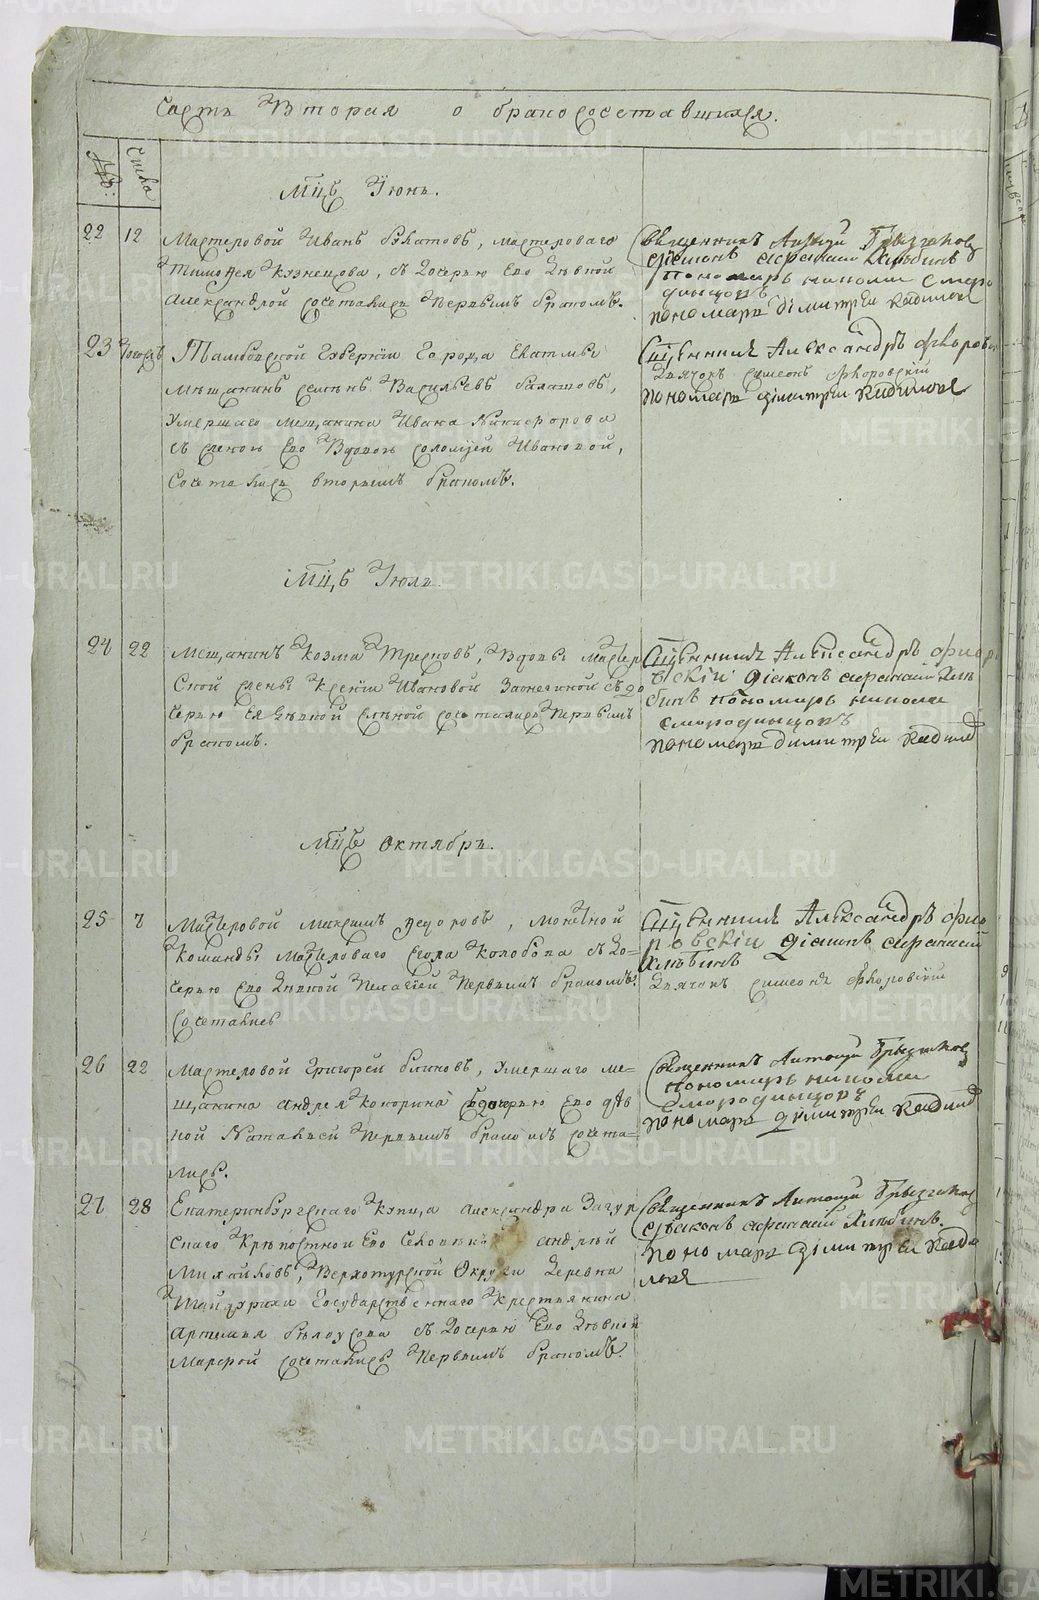 Часть Вторая о бракосочетавшихся.
№въ: Числа
Мцъ Июнь.
22 12 Мастеровой Иванъ Булатовъ, мастероваго
Тимофея Кузнецова, съ дочерью Ево девкой
Александрой сочетались первымъ бракомъ.
Священникъ Антоний
диаконъ Афанасий Хлѣбинъ
Пономарь николай Сморо
динцовъ
пономарь димитрей Кадилов
23 Тамбовской Губернии Города
Мѣщанинъ Васильевъ
Умершаго мещанина Ивана Никифорова
съ женою Ево Вдовою Соломией Ивановой,
Сочетались вторымъ бракомъ.
Священникъ Александръ Флоровск
Дьячокъ Симеонъ Флоровский
пономарь димитрей Кадилов
Мцъ Июль.
24 22 Мещанинъ Козма, Вдовы Мастер
ской жены Ксении Ивановой съ до
черью Ея девкой Еленой сочетались первымъ
бракомъ.
Священникъ Александръ Флоро
вский диаконъ Афанасий Хлѣ
бинъ пономарь николай
Смородинцовъ
пономарь димитрей Кадилов
Мцъ Октябрь.
25 7 Мастеровой Максимъ Федоровъ, монетной
Команды мастероваго Колобова съ до-
черью Ево девкой Пелагией первымъ бракомъ
сочетались
Священникъ Александръ Фло
ровский диаконъ Афанасий
Хлѣбинъ
Дьячокъ Симеонъ Флоровский
26 22 Мастеровой Григорей Блиновъ, Умершаго ме-
щанина андрея дочерью Ево дѣв
кой Натальей первымъ бракомъ сочета-
лись.
Священникъ Антоний
пономарь николай
Смородинцовъ
пономарь димитрей Кадилов
27 28 Екатеринбургскаго Купца александра Загур
скаго Крѣпостной Ево Человекъ андрей
Михайловъ, Верхотурской Округи Деревни
Государственнаго Крестьянина
Артемия Бѣлоусова съ дочерью Ево девкой
Марфой сочетались первымъ бракомъ.
Священникъ Антоний
диаконъ афанасий Хлѣбинъ.
пономарь димитрей Кади
ловъ
METRIKI.GASO-URAL.RU